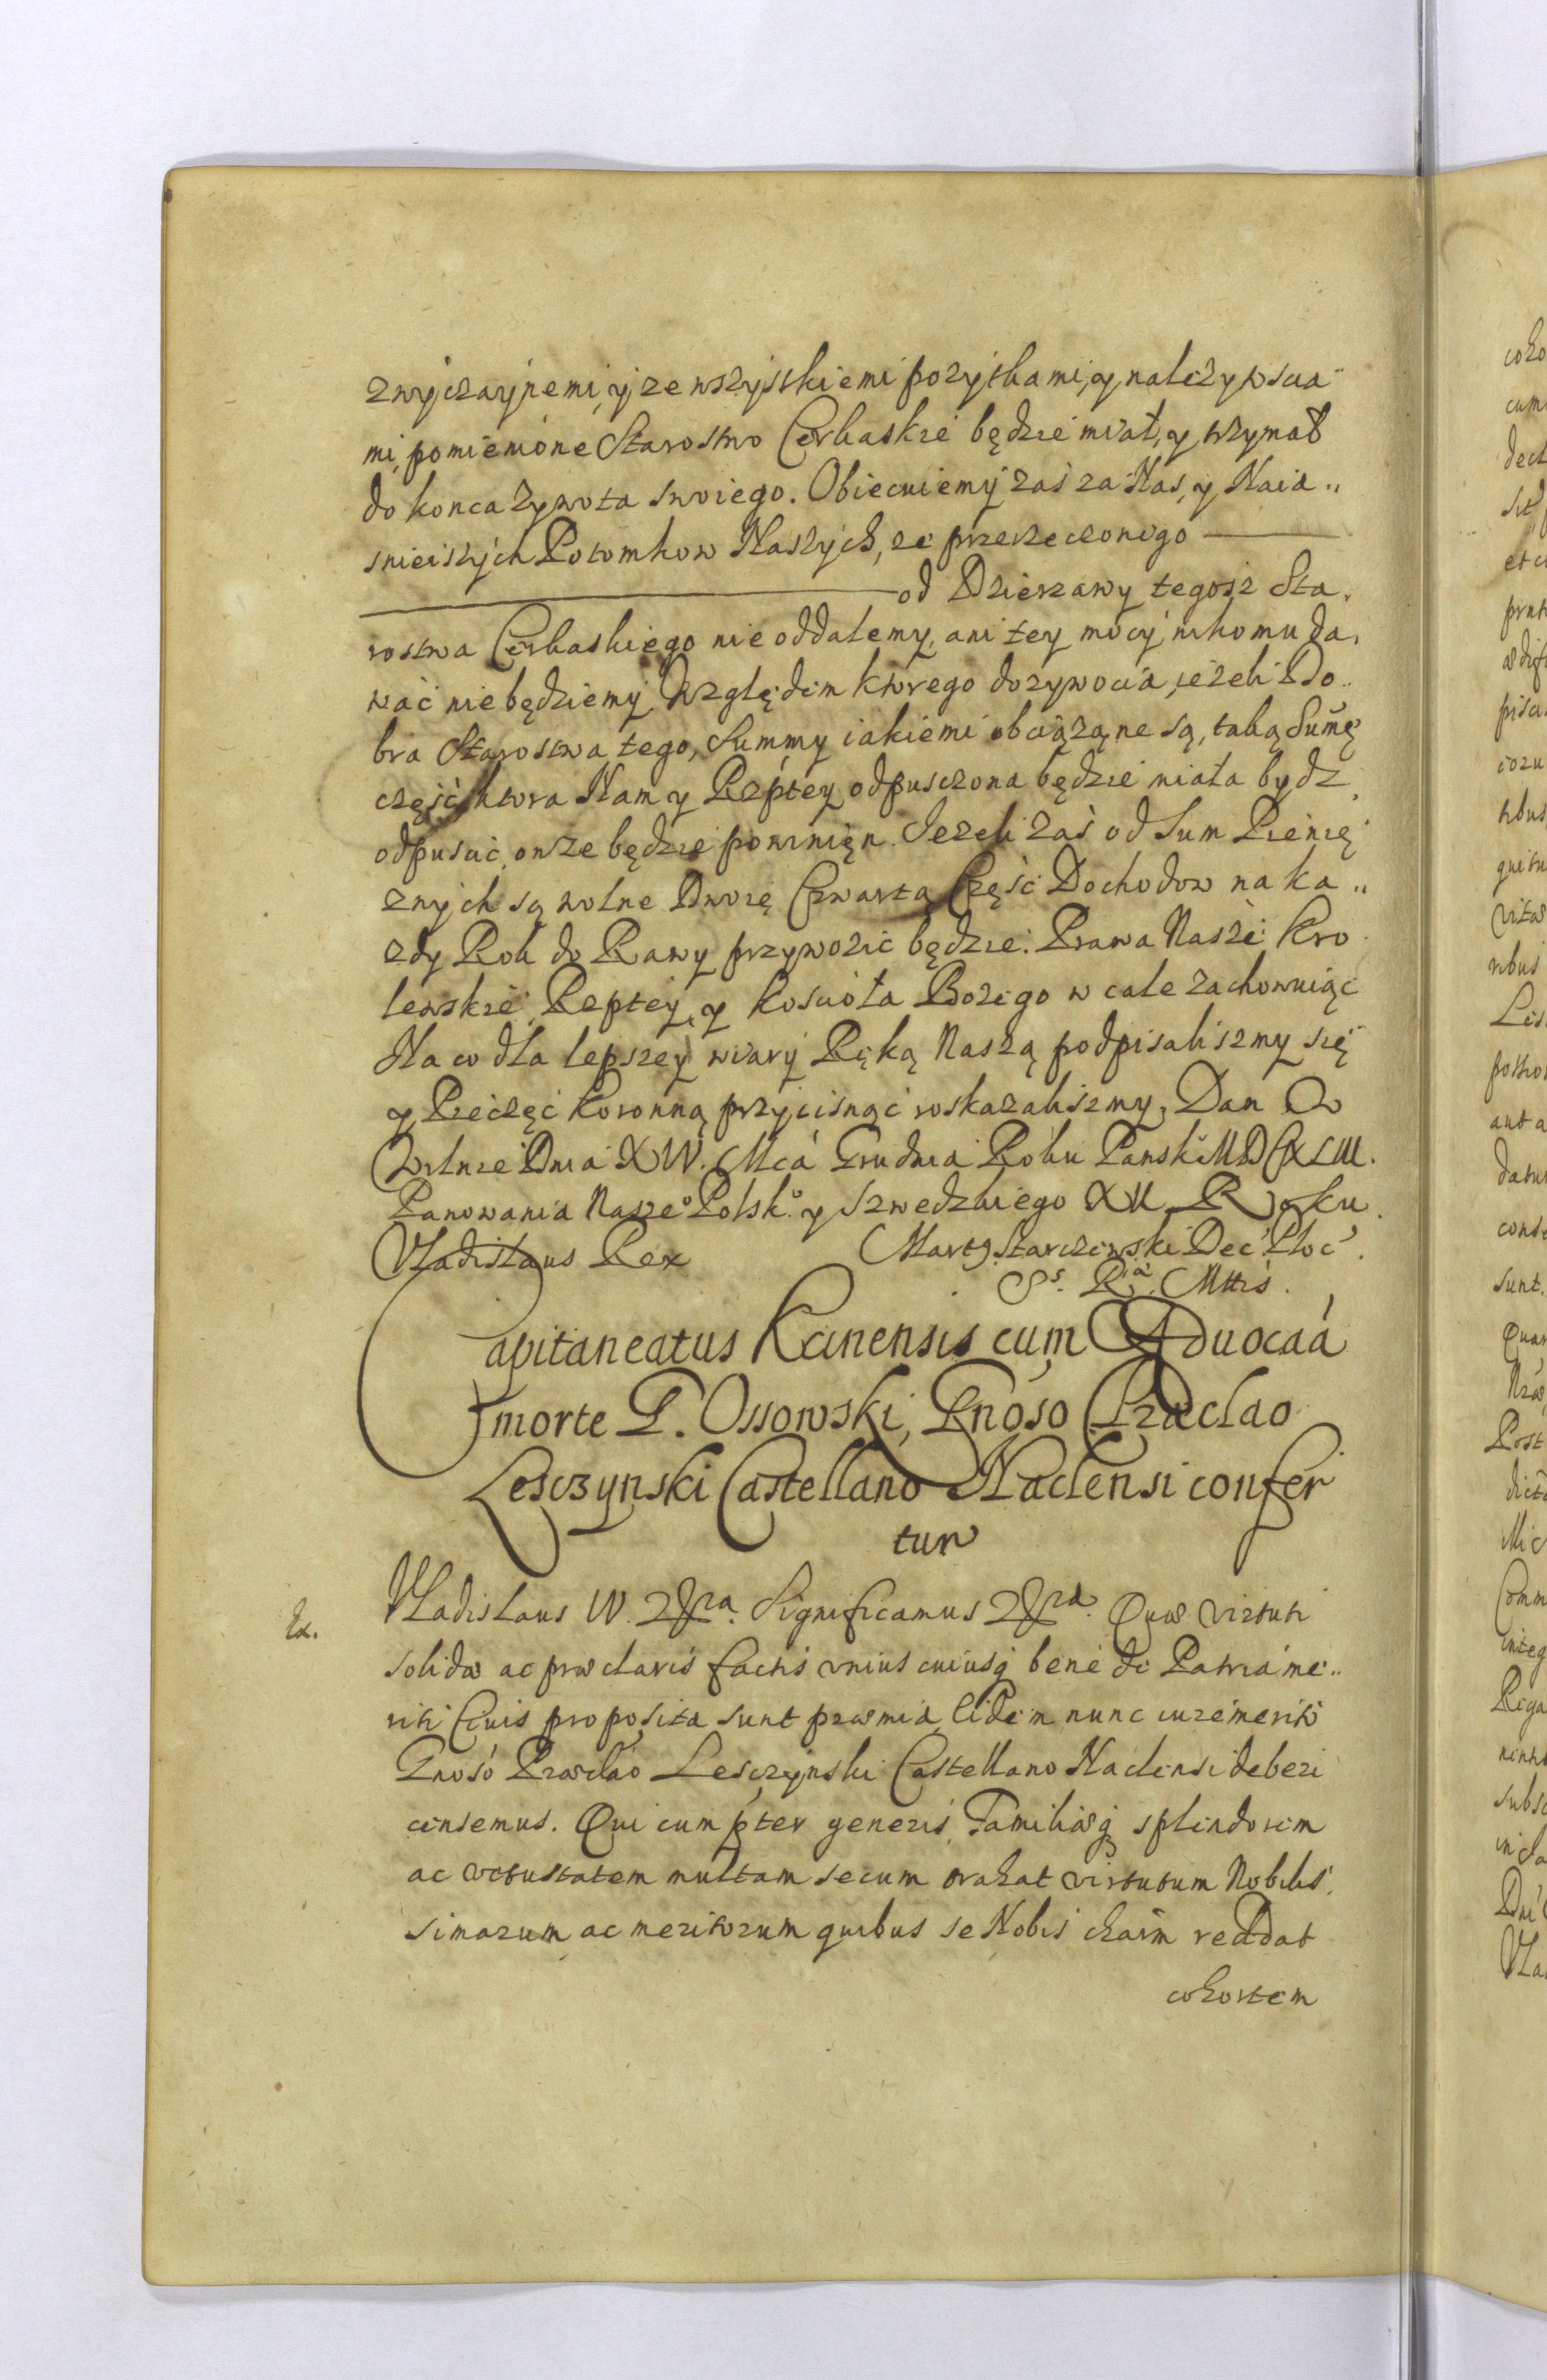 zwyczaynemi, y ze wszystkiemi pozytkami, y nalezytoscia
mi, pomienione Starostwo Czerkaskie będzie miał, y trzymał
do konca zywota swoiego. Obiecuiemy zaś za Nas, y Naia„
snieiszych Potomkow Naszych, ze przerzeczonego
od Dzierzawy tegosz Sta„
rostwa Czerkaskiego nie oddalemy, ani tey mocy nikomu da„
wać nie będziemy. Względem ktorego dozywocia, iezeli Do„
bra Starostwa tego, Summy iakiemi obciąząne są, taką Sumę
część, ktora Nam y Rzptey odpusczona będzie miała bydz
odpuscić, onze będzie powinięn. Iezeli zaś od Sum Pienię
znych są wolne Dwoię Czwartą Część Dochodow na ka„
zdy Rok do Rawy przywozic będzie. Prawa Nasze Kro
lewskie, Rzeptey, y Kosciota Bozego w cale zachowuiąc
Na co dla lepszey wiary Ręką Naszą podpisalismy się
y Pieczęć Koronną przycisnąć roskazalismy. Dan W
Wilnie Dnia XIV. Mca Grudnia Roku Pansk° MDCXLIII.
Panowania Nasze° Polsk°. y Szwedzkiego XII Roku.
Vladislaus Rex Mart9 Starczewski Dec. Ploc.
Ss. Riæ. Mttis.
Capitaneatus Kcinensis cum Aduocaá
morte G. Ossowski, Gnóso Præclao
Lesczynski Castellano Naclensi confer
tur
Ex.
Vladislaus IV. &ra. Significamus &ra. Quæ virtuti
solidæ ac præclaris factis vnius cuiusq bene de Patria me„
riti Civis proposita sunt præmia, eidem nunc iure merito
Gnosó Præclaó Lesczynski Castellano Naclensi deberi
censemus. Qui cum pter generis, Familiæq splendorem
ac vetustatem multam secum trahat virtutum Nobilis„
simarum ac meritorum quibus se Nobis charm reddat
cohortem